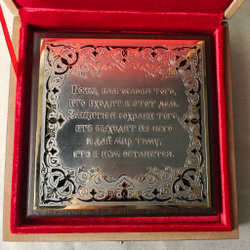 Боже, благослови того,
кто входит в этот дом.
Защити и сохрани того,
кто выходит из него
и дай мир тому,
кто в нём останется.